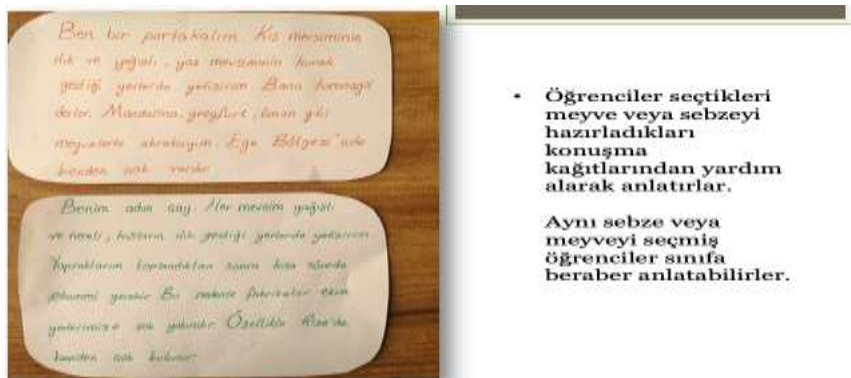 Ben bir portakalım. Kış mevsiminin
ılık ve yağışlı, yaz mevsiminin kurak
geçtiği yerlerde yetişirim. Bana turunçgil
derler. Mandalina, greyfurt, limon gibi
meyvelerle akrabayım. Ege Bölgesi'nde
benden çok vardır.
Benim adım çay. Her mevsim yağışlı
ve nemli, kışların ılık geçtiği yerlerde yetişirim.
Yapraklarım toplandıktan sonra kısa sürede
gerekir Bu nedenle fabrikalar ekim
çok yakındır. Özellikle Rize'de
benden çok bulunur.
• Öğrenciler seçtikleri
meyve veya sebzeyi
hazırladıkları
konuşma
kağıtlarından yardım
alarak anlatırlar.
Aynı sebze veya
meyveyi seçmiş
öğrenciler sınıfa
beraber anlatabilirler.